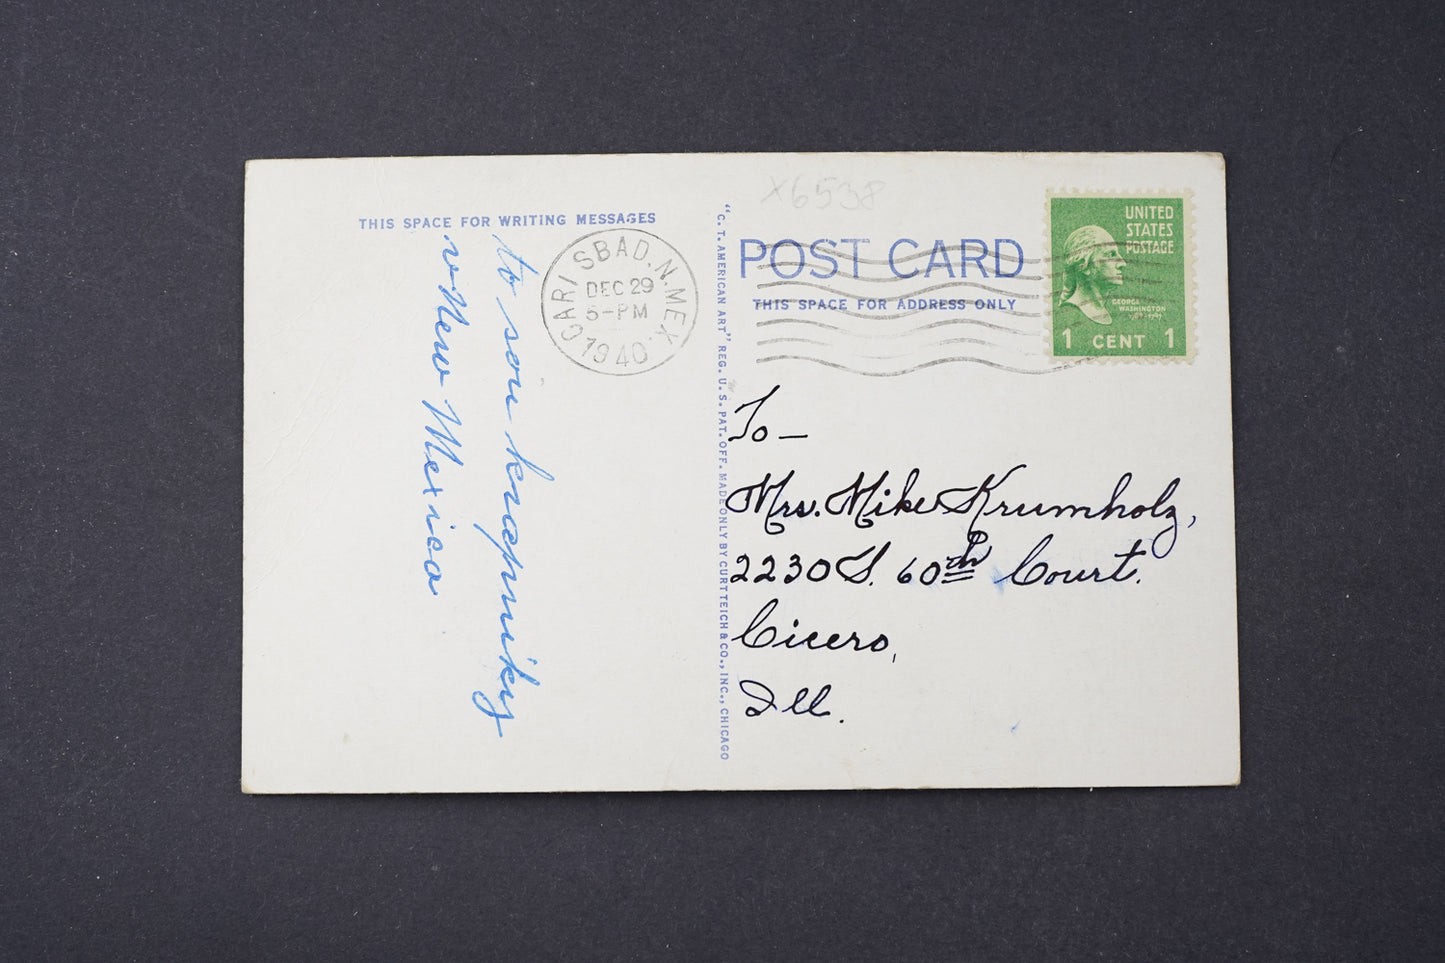 X6538
THIS SPACE FOR WRITING MESSAGES
to sou krapniky
v New Mexico
CARLSBAD, N. MEX.
DEC 29
5-PM
1940
"C. T. AMERICAN ART" REG. U. S. PAT. OFF. MADE ONLY BY CURT TEICH & CO., INC., CHICAGO
POST CARD
THIS SPACE FOR ADDRESS ONLY
UNITED
STATES
POSTAGE
GEORGE
WASHINGTON
1 CENT 1
To —
Mrs. Mike Krumholz,
2230 S. 60th Court.
Cicero,
Ill.